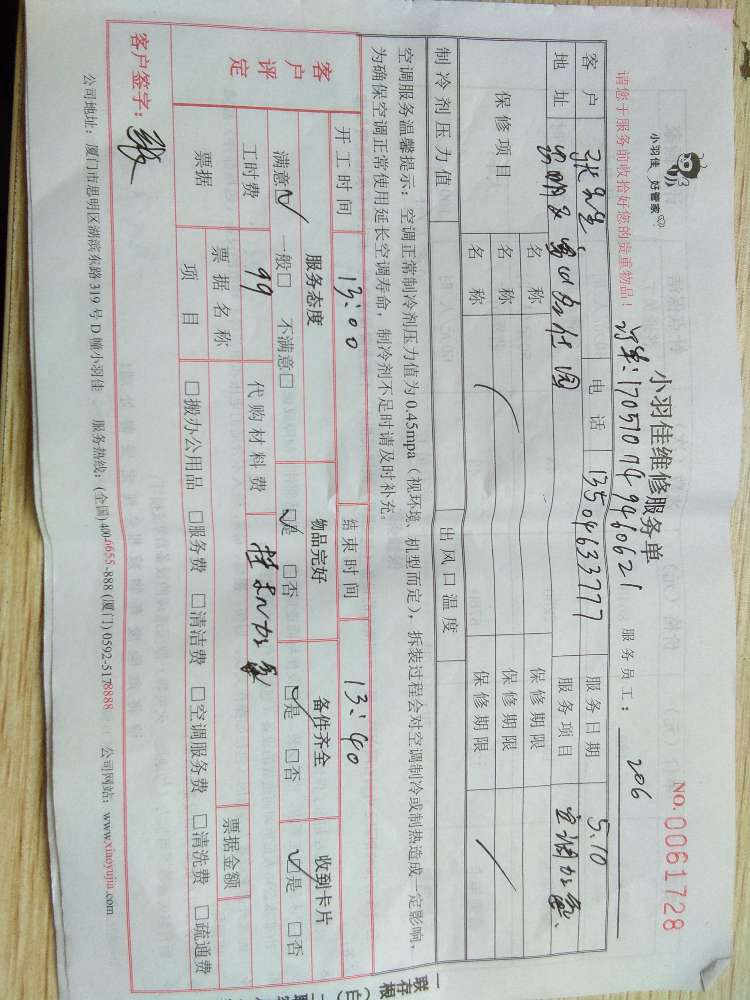 小羽佳 好管家
小羽佳维修服务单
NO. 0061728
请您于服务前收拾好您的贵重物品！
服务员工： 206
客户 张先生 电话 13504633777 服务日期 5.10
地址 服务项目 空调加氟
保修项目 名称 保修期限
名称 保修期限
名称 保修期限
制冷剂压力值 出风口温度
空调服务温馨提示：空调正常制冷剂压力值为0.45mpa（视环境、机型而定），拆装过程会对空调制冷或制热造成一定影响，
为确保空调正常使用延长空调寿命，制冷剂不足时请及时补充。
开工时间 13:00 结束时间 13:40
客户评定 服务态度 物品完好 备件齐全 收到卡片
满意☑ 一般□ 不满意□ ☑是 □否 ☑是 □否 ☑是 □否
工时费 99 代购材料费
票据 票据名称 票据金额
项目 □搬办公用品 □服务费 □清洁费 □空调服务费 □清洗费 □疏通费
客户签字：
公司地址：厦门市思明区湖滨东路319号D幢小羽佳 服务热线：(全国)400-6655-888 (厦门) 0592-5178888 公司网站：www.xiaoyujia.com